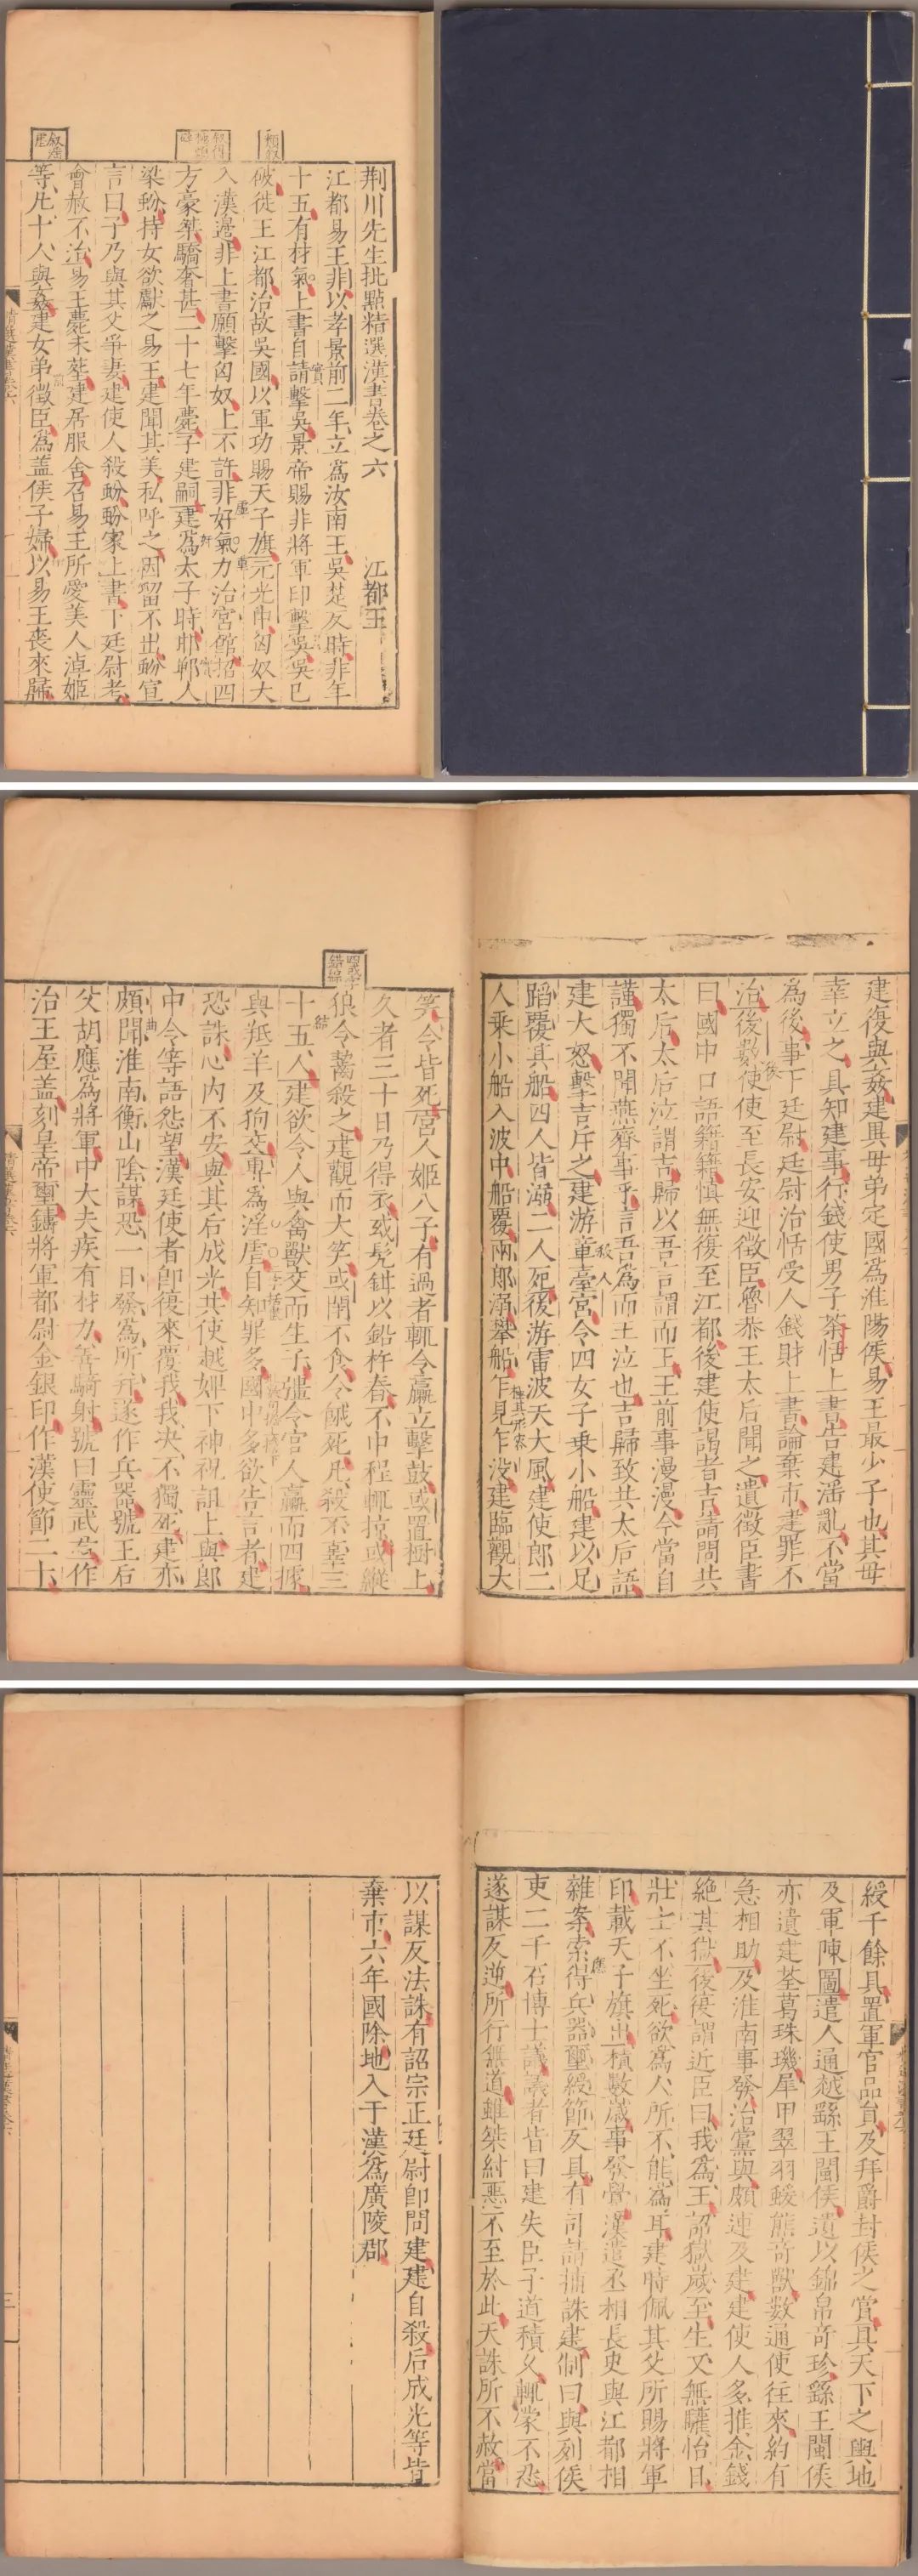 荆川先生批點精選漢書卷之六　江都王
江都易王非以孝景前二年立爲汝南王吳楚反時非年
十五有材氣上書自請擊吳景帝賜非將軍印擊吳吳已
破徙王江都治故吳國以軍功賜天子旗元光中匈奴大
入漢邊非上書願擊匈奴上不許非好氣力治宮館招四
方豪桀驕奢甚二十七年薨子建嗣建爲太子時邯鄲人
梁蚡持女欲獻之易王建聞其美私呼之因留不出蚡宣
言曰子乃與其父爭妻建使人殺蚡蚡家上書下廷尉考
會赦不治易王薨未葬建居服舍召易王所愛美人淖姬
等凡十人與姦建女弟徵臣爲盖侯子婦以易王喪來歸
建復與姦建異母弟定國爲淮陽侯易王最少子也其母
幸立之具知建事行錢使男子荼恬上書告建淫亂不當
爲後事下廷尉廷尉治恬受人錢財上書論棄市建罪不
治後數使使至長安迎徵臣魯恭王太后聞之遺徵臣書
曰國中口語籍籍慎無復至江都後建使謁者吉請問共
太后太后泣謂吉歸以吾言謂而王王前事漫漫今當自
謹獨不聞燕齊事乎言吾爲而王泣也吉歸致共太后語
建大怒擊吉斥之建游章臺宮令四女子乗小船建以足
蹈覆其船四人皆溺二人死後游雷波天大風建使郎二
人乘小船入波中船覆兩郎溺攀船乍見乍沒建臨觀大
笑令皆死宮人姬八子有過者輒令臝立擊鼓或置樹上
久者三十日乃得衣或髡鉗以鉛杵舂不中程輒掠或縱
狼令齧殺之建觀而大笑或閉不食令餓死凡殺不辜三
十五人建欲令人與禽獸交而生子彊令宮人臝而四據
與羝羊及狗交專爲淫虐自知罪多國中多欲告言者建
恐誅心内不安與其后成光共使越婢下神祝詛上與郎
中令等語怨望漢廷使者卽復來覆我我决不獨死建亦
頗聞淮南衡山陰謀恐一日發爲所并遂作兵器號王后
父胡應爲將軍中大夫疾有材力善騎射號曰靈武君作
治王屋盖刻皇帝璽鑄將軍都尉金銀印作漢使節二十
綬千餘具置軍官品員及拜爵封侯之賞具天下之輿地
及軍陳圖遣人通越繇王閩侯遺以錦帛奇珍繇王閩侯
亦遺建荃葛珠璣犀甲翠羽蝯熊奇獸數通使往來約有
急相助及淮南事發治黨與頗連及建建使人多推金錢
絶其獄後復謂近臣曰我爲王詔獄歲至生又無驩怡日
壯士不坐死欲爲人所不能爲耳建時佩其父所賜將軍
印載天子旗出積數歲事發覺漢遣丞相長史與江都相
雜案索得兵器璽綬節反具有司請捕誅建制曰與列侯
吏二千石博士議議者皆曰建失臣子道積久輒蒙不忍
遂謀反逆所行無道雖桀紂惡不至於此天誅所不赦當
以謀反法誅有詔宗正廷尉卽問建建自殺后成光等皆
棄市六年國除地入于漢爲廣陵郡